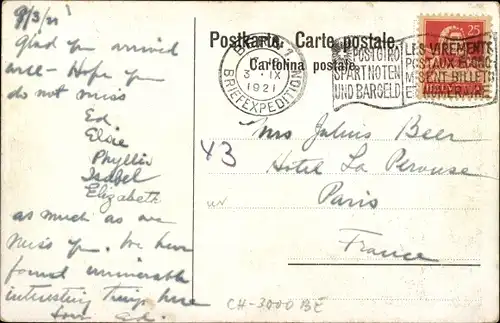 9/3/21
Glad you arrived
well - Hope you
do not miss
Ed
Elsie
Phyllis
Isabel
Elizabeth
as much as we
miss you. We have
found innumerable
interesting things here
Love Ed.
Postkarte. Carte postale.
Cartolina postale.
3 · IX
1921
BRIEFEXPEDITION
POSTGIRO
SPART NOTEN
UND BARGELD
LES VIREMENTS
POSTAUX ECONO
MISENT BILLETS
ET NUMERAIRE
25
43
Mrs Julius Beer
Hotel La Perouse
Paris
France
CH-3000 BE